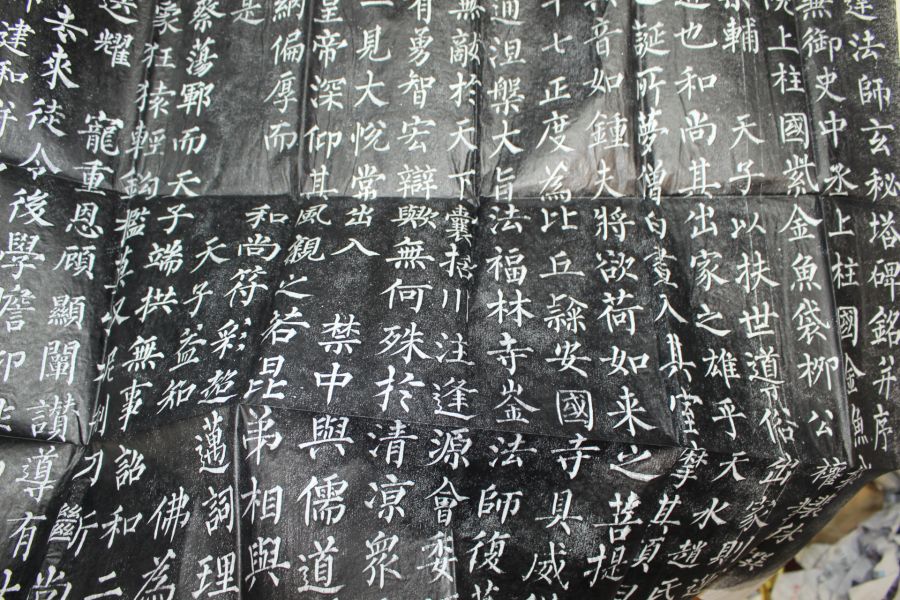 達法師玄秘塔碑銘并序
御史中丞上柱國金魚
上柱國紫金魚袋柳公權
輔 天子以扶世道俗出家則
也和尚其出家之雄乎天水趙
誕所夢僧白晝入其室摩其頂
音如鐘夫將欲荷如来之菩提
十七正度為比丘隸安國寺具威
通涅槃大旨法福林寺崟法師復
無敵於天下囊括川注逢源會委
有勇智宏辯歟無何殊於清涼眾
一見大悅常出入 禁中與儒道
皇帝深仰其風觀之若昆弟相與
納偏厚而和尚符彩超邁詞理
是 天子益知佛為
蔡蕩鄆而天子端拱無事詔和
象狂猿輕鈎檻莫收柅制刀斷
耀 寵重恩顧顯闡讚導有
未來徒令後學瞻仰
建和